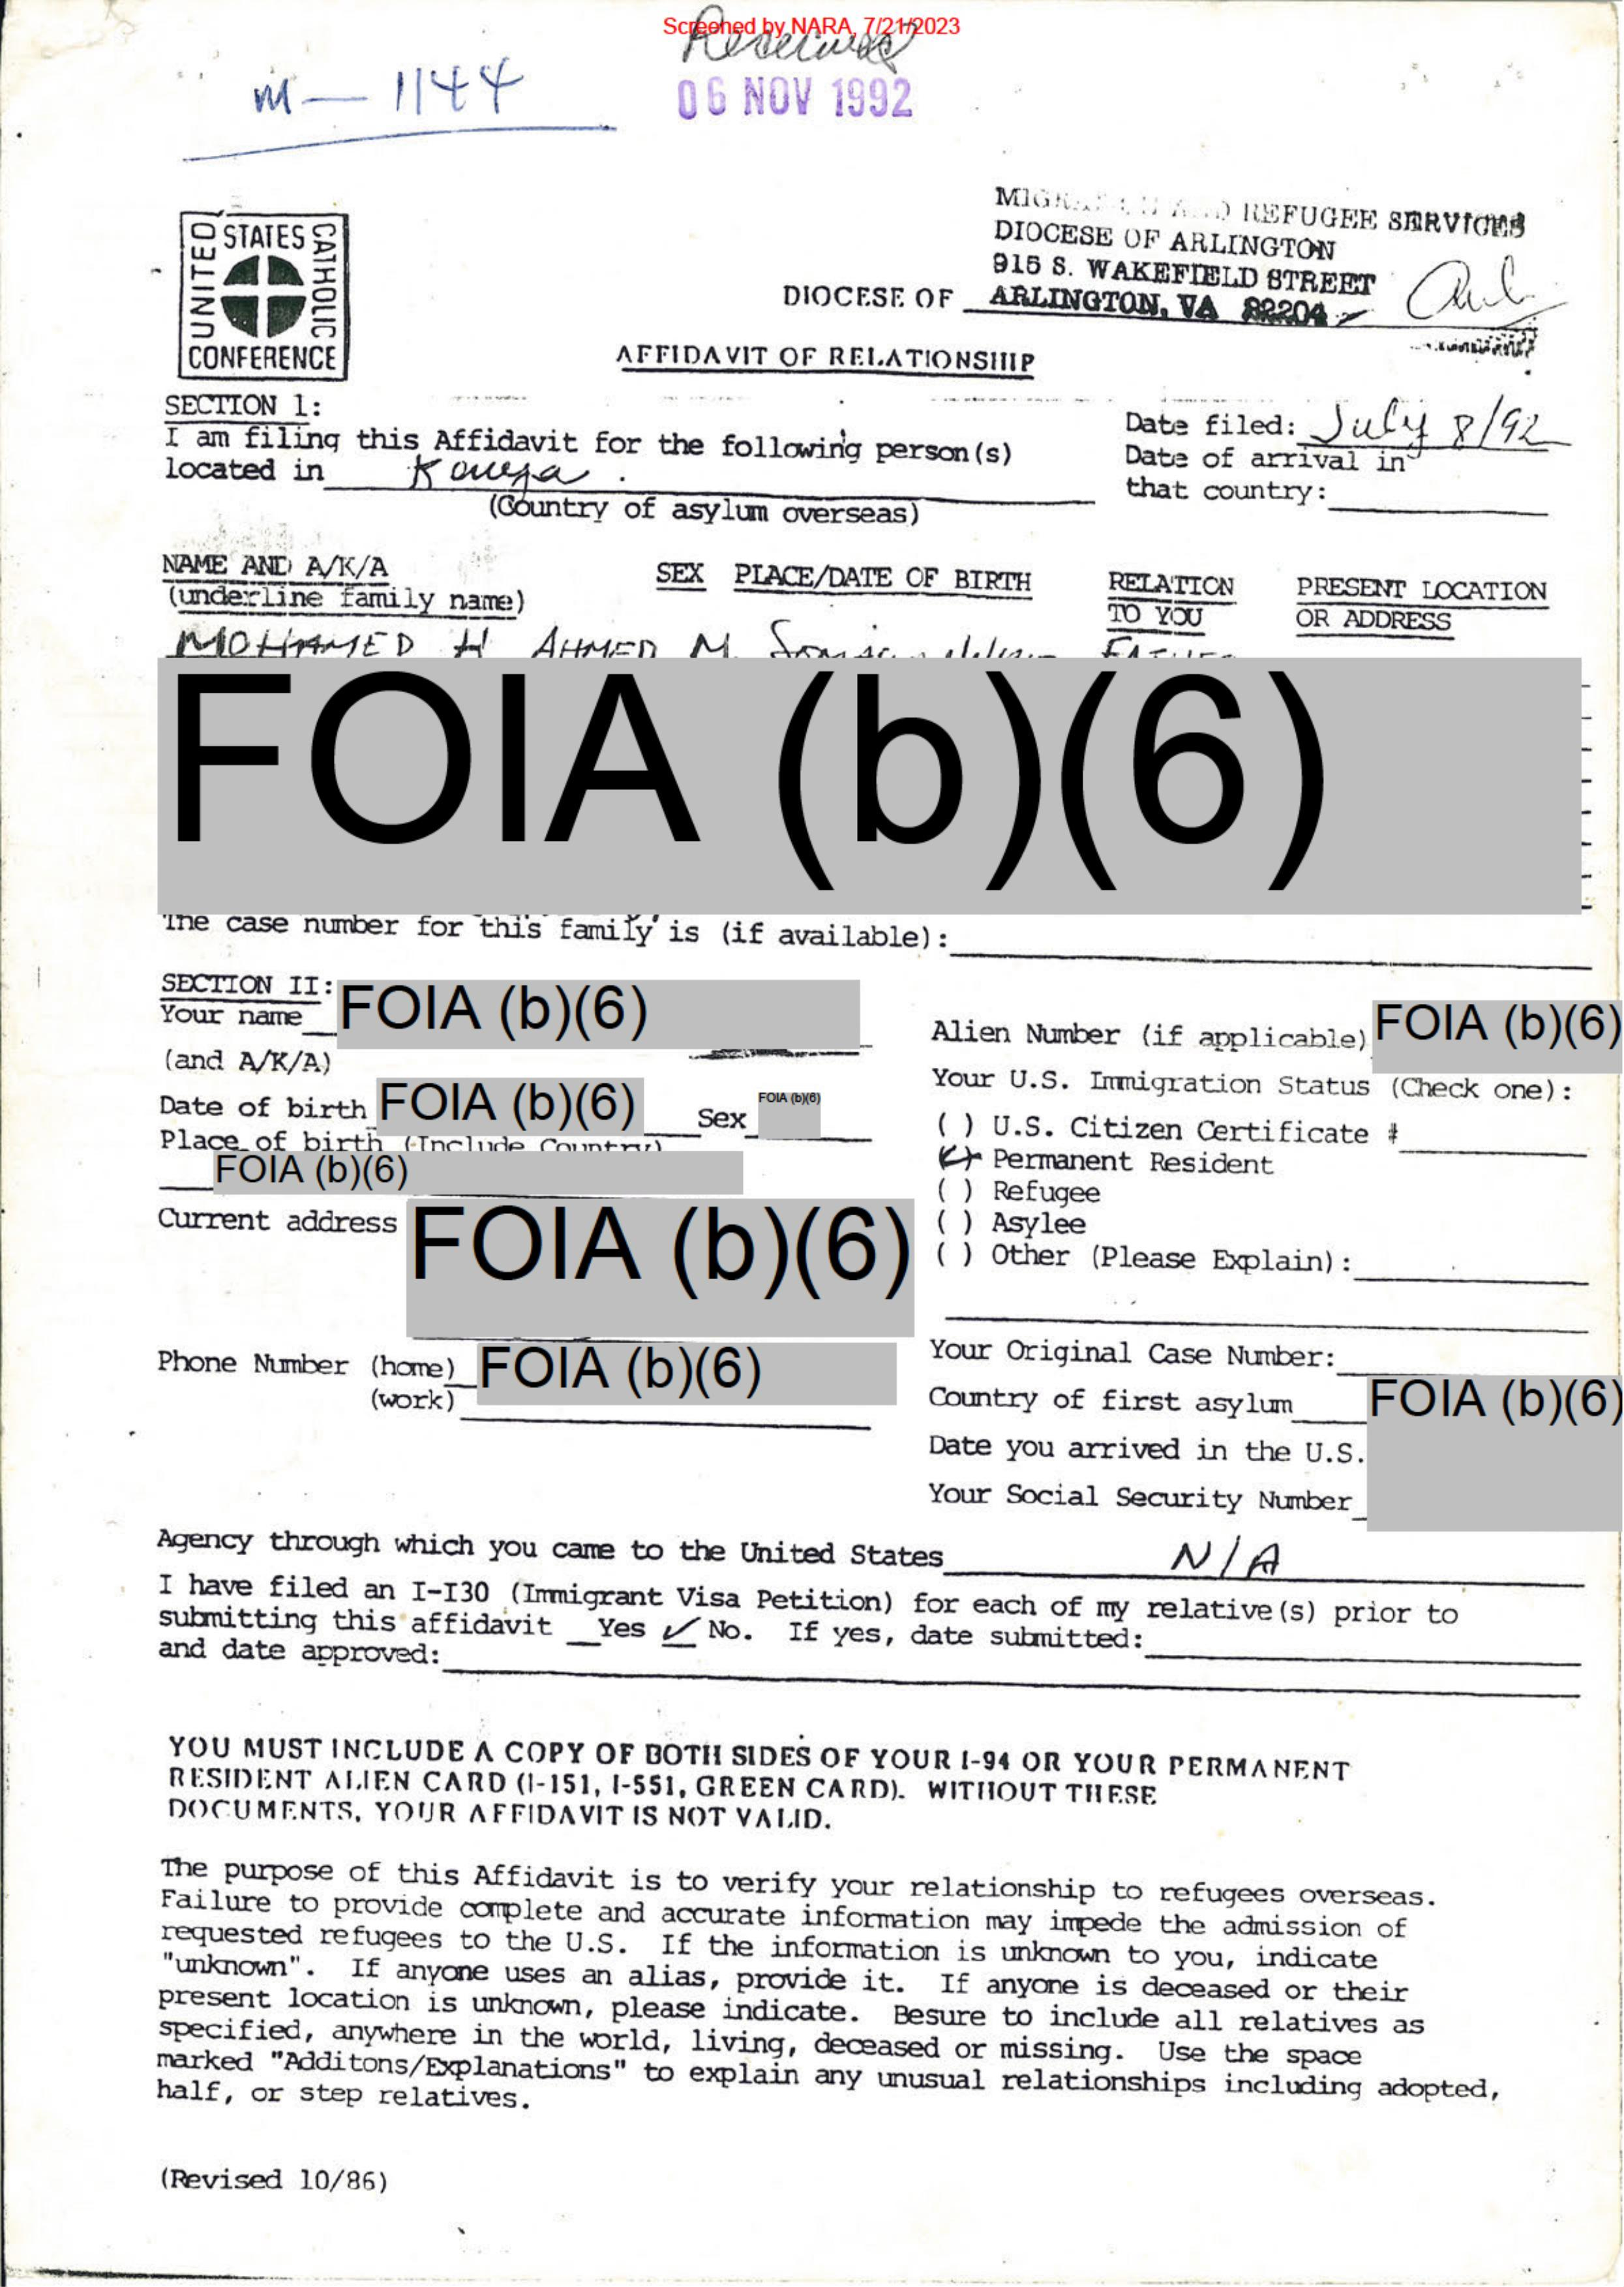 Screened by NARA, 7/21/2023
Received
m — 1144
06 NOV 1992
UNITED STATES CATHOLIC CONFERENCE
REFUGEE SERVICES
DIOCESE OF ARLINGTON
915 S. WAKEFIELD STREET
DIOCESE OF ARLINGTON, VA 82204
AFFIDAVIT OF RELATIONSHIP
SECTION 1:
I am filing this Affidavit for the following person(s)
located in Kenya.
(Country of asylum overseas)
Date filed: July 8/92
Date of arrival in
that country:
NAME AND A/K/A
(underline family name)
SEX PLACE/DATE OF BIRTH
RELATION
TO YOU
PRESENT LOCATION
OR ADDRESS
MOHAMED H AHMED M FATHER
FOIA (b)(6)
The case number for this family is (if available):
SECTION II:
Your name FOIA (b)(6)
(and A/K/A)
Date of birth FOIA (b)(6) Sex FOIA (b)(6)
Place of birth (Include Country)
FOIA (b)(6)
Current address FOIA (b)(6)
Phone Number (home) FOIA (b)(6)
(work)
Alien Number (if applicable) FOIA (b)(6)
Your U.S. Immigration Status (Check one):
( ) U.S. Citizen Certificate #
(✓) Permanent Resident
( ) Refugee
( ) Asylee
( ) Other (Please Explain):
Your Original Case Number:
Country of first asylum FOIA (b)(6)
Date you arrived in the U.S.
Your Social Security Number
Agency through which you came to the United States N/A
I have filed an I-I30 (Immigrant Visa Petition) for each of my relative(s) prior to
submitting this affidavit __Yes ✓ No. If yes, date submitted:
and date approved:
YOU MUST INCLUDE A COPY OF BOTH SIDES OF YOUR I-94 OR YOUR PERMANENT
RESIDENT ALIEN CARD (I-151, I-551, GREEN CARD). WITHOUT THESE
DOCUMENTS, YOUR AFFIDAVIT IS NOT VALID.
The purpose of this Affidavit is to verify your relationship to refugees overseas.
Failure to provide complete and accurate information may impede the admission of
requested refugees to the U.S. If the information is unknown to you, indicate
"unknown". If anyone uses an alias, provide it. If anyone is deceased or their
present location is unknown, please indicate. Besure to include all relatives as
specified, anywhere in the world, living, deceased or missing. Use the space
marked "Additons/Explanations" to explain any unusual relationships including adopted,
half, or step relatives.
(Revised 10/86)